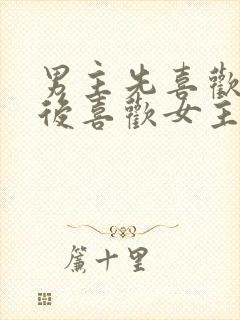 男主先喜歡
後喜歡女主
簾十里